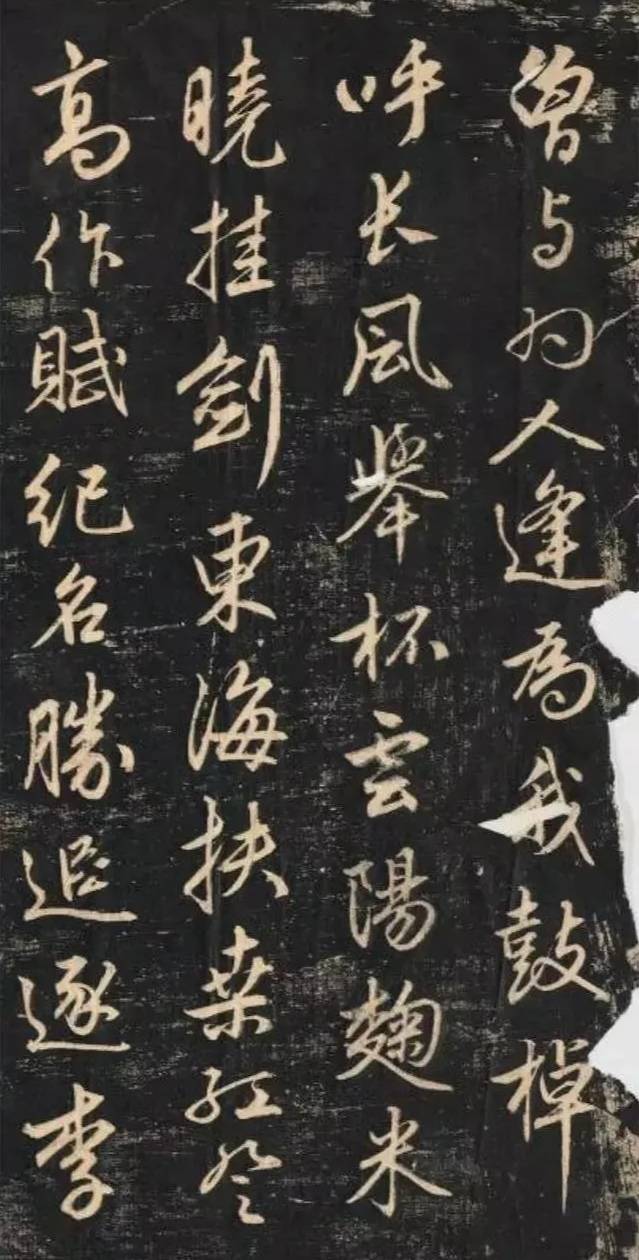 曾与羽人逢為我鼓棹
呼长風舉杯雲陽麴米
曉挂剑東海扶桒紅登
高作賦纪名勝追逐李